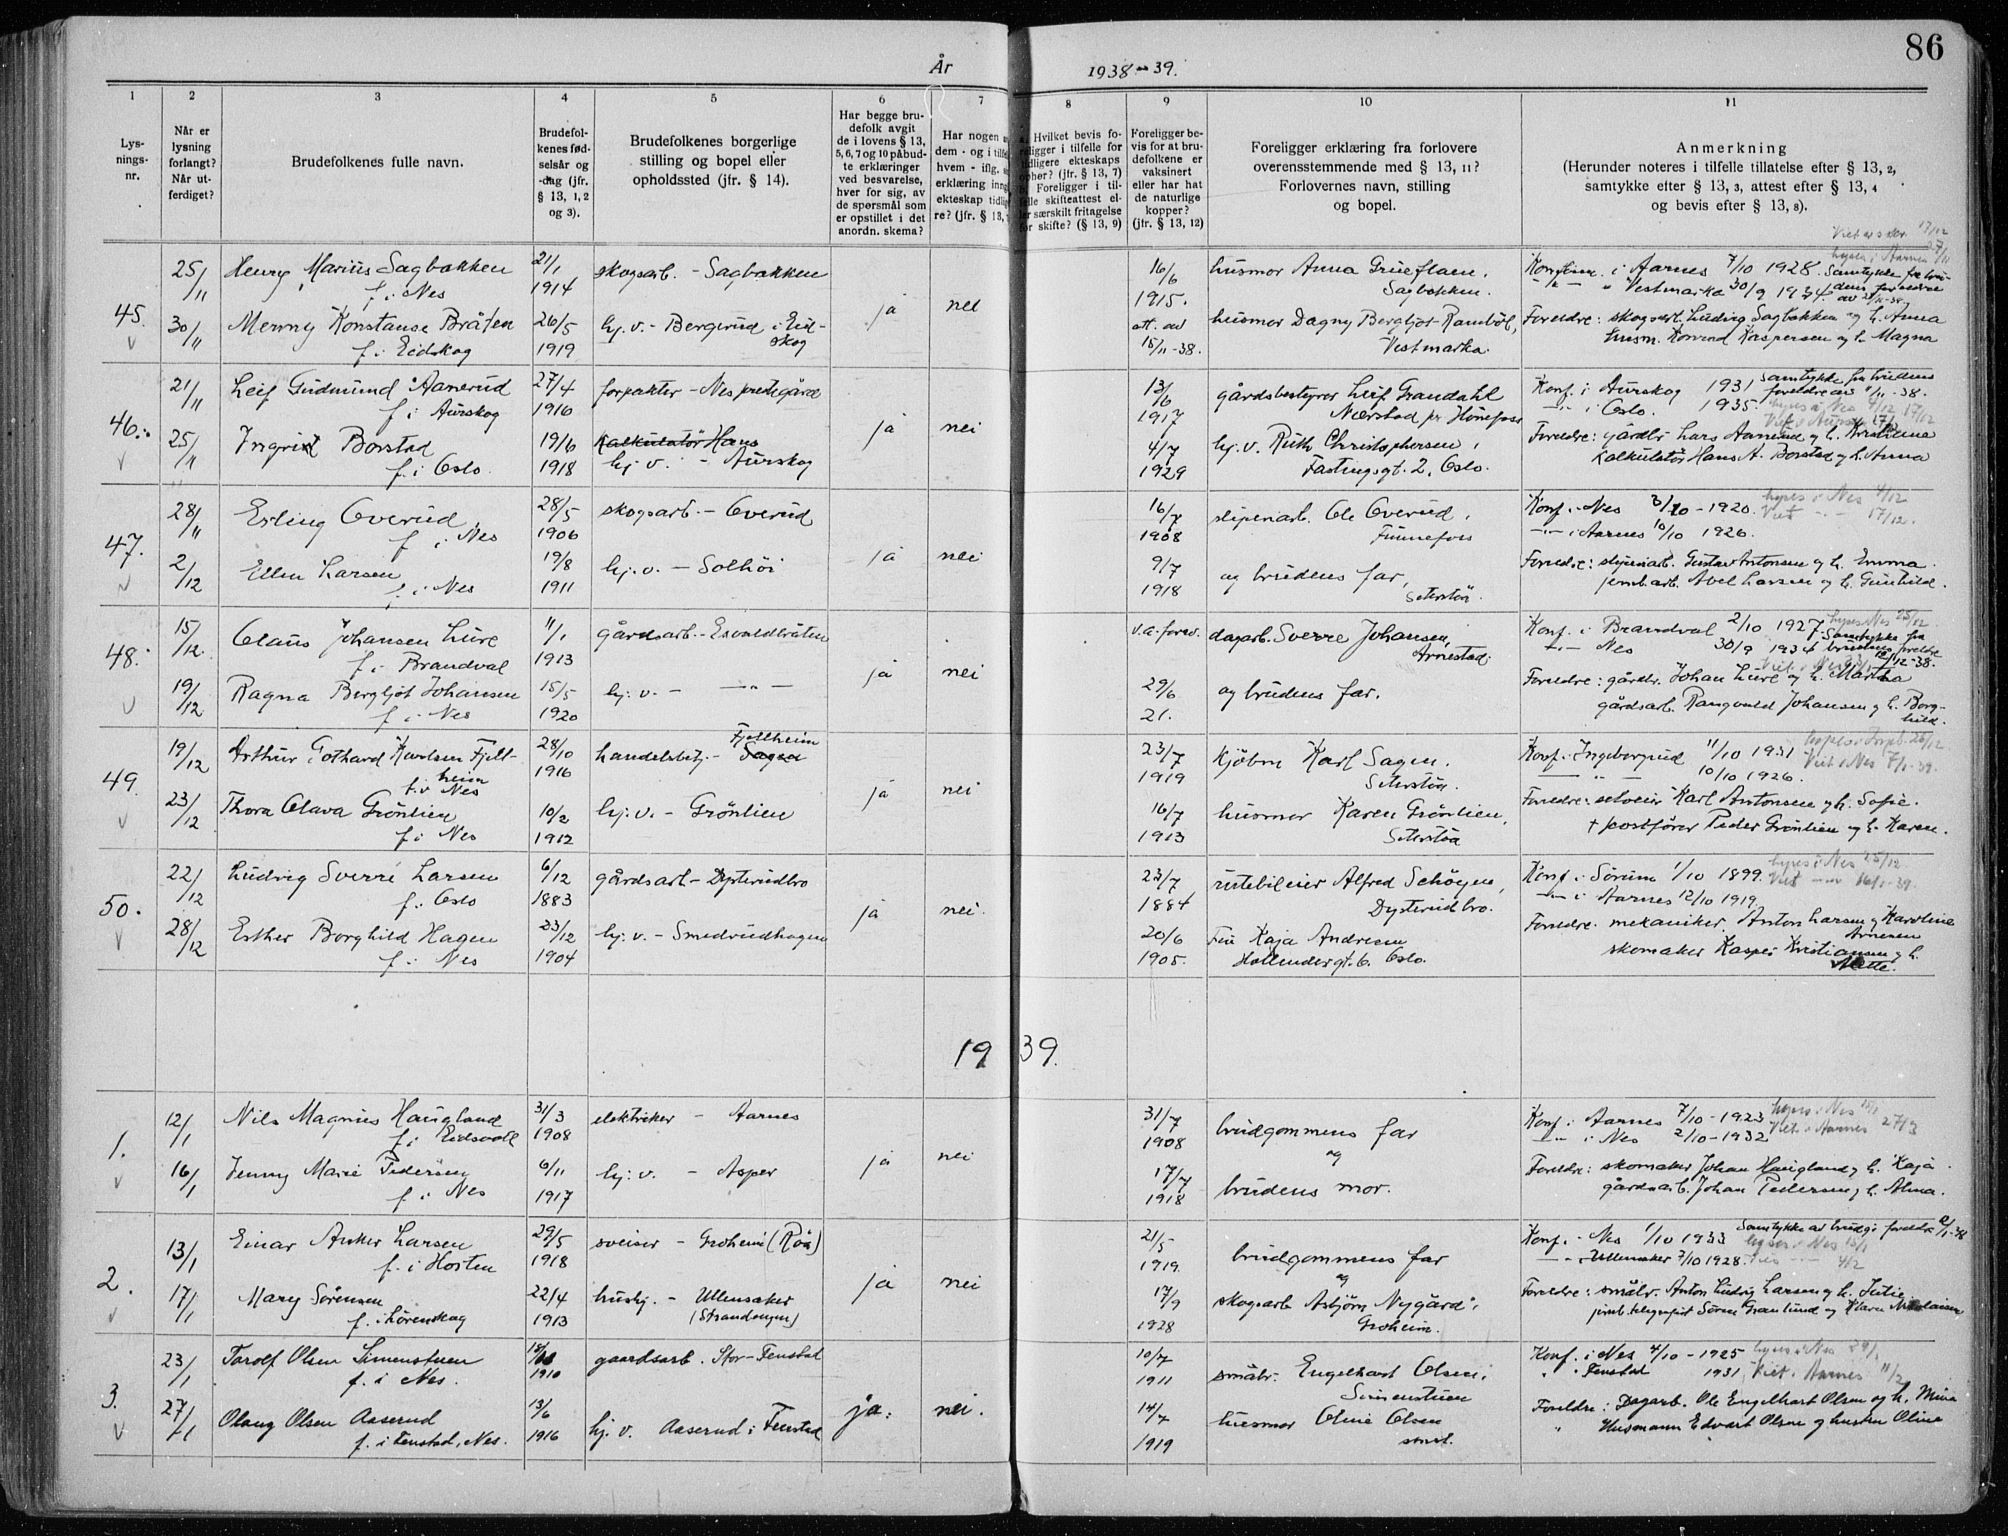 86
År 1938-39.
1 2 3 4 5 6 7 8 9 10 11
Lys-
nings-
nr.
Når er
lysning
forlangt?
Når ut-
ferdiget?
Brudefolkenes fulle navn.
Brudefol-
kenes fød-
selsår og
-dag (jfr.
§ 13, 1, 2
og 3).
Brudefolkenes borgerlige
stilling og bopel eller
opholdssted (jfr. § 14).
Har begge bru-
defolk avgit
de i lovens § 13,
5, 6, 7 og 10 påbud-
te erklæringer
ved besvarelse,
hver for sig, av
de spørsmål som
er opstillet i det
anordn. skema?
Har nogen
dem - og i tilfe
hvem - iflg.
erklæring inng
ekteskap tidlig
re? (jfr. § 13,
Hvilket bevis fo-
religger i tilfelle for
tidligere ekteskaps
ophør? (jfr. § 13, 7)
Foreligger i til-
felle skifteattest el-
ler særskilt fritagelse
for skifte? (§ 13, 9)
Foreligger be-
vis for at bru-
defolkene er
vaksinert
eller har hat
de naturlige
kopper?
(jfr. § 13, 12)
Foreligger erklæring fra forlovere
overensstemmende med § 13, 11?
Forlovernes navn, stilling
og bopel.
Anmerkning
(Herunder noteres i tilfelle tillatelse efter § 13, 2,
samtykke efter § 13, 3, attest efter § 13, 4
og bevis efter § 13, 8).
45.
25/11
30/11
Henry Marius Sagbakken
f. i Nes
Menny Konstanse Bråten
f. i Eidskog
21/1
1914
26/5
1919
skogsarb. - Sagbakken
hj. v. - Bergerud i Eid-
skog
ja
nei
16/6
1915.
att. av
15/11-38.
husmor Anna Grueflaen,
Sagbakken.
husmor Dagny Bergljot Rambøl,
Vestmarka.
17/12
Konfirm. i Aarnes 7/10 1928. Samtykke fra bru-
-"- " Vestmarka 30/9 1934. dens foreldre
Foreldre: skogsarb. Ludvig Sagbakken og h. Anna
husm. Konrad Kaspersen og h. Magna
46.
21/11
25/11
Leif Gudmund Aanerud
f. i Aurskog
Ingrid Borstad
f. i Oslo.
27/4
1916
19/6
1918
forpakter - Nes prestegård
Kalkulatør Hans
hj. v. - Aurskog
ja
nei
13/6
1917
4/7
1929
gårdsbestyrer Leif Grandahl
Nærstad pr Hønefoss
hj. v. Ruth Christophersen,
Fastingsgt. 2, Oslo.
Konf. i Aurskog 1931 Samtykke fra brudens
-"- i Oslo. 1935. foreldre av 11/11-38.
Foreldre: gårdbr. Lars Aanerud og h. Kristiane
kalkulatør Hans A. Borstad og h. Anna
47.
28/11
2/12
Erling Overud
f. i Nes
Ellen Larsen
f. i Nes
28/5
1906
19/8
1911
skogsarb. - Overud
hj. v. - Solhøi
ja
nei
16/7
1908
9/7
1918
sliperiarb. Ole Overud,
Funnefoss
og brudens far,
Seterstøa.
Konf. i Nes 3/10-1920. lyses i Nes 4/12
-"- i Aarnes 10/10 1926. Viet -"- 17/12.
Foreldre: sliperiarb. Gustav Antonsen og h. Emma.
jernb.arb. Abel Larsen og h. Gunhild.
48.
15/12.
19/12
Claus Johansen Lure
f. i Brandval
Ragna Bergljot Johansen
f. i Nes
11/1
1913
15/5
1920
gårdsarb. - Esvaldbråten
hj. v. - -"-
ja
nei
v.a. forev.
29/6
21.
dagarb. Sverre Johansen,
Arnestad.
og brudens far.
Konf. i Brandval 2/10 1927. lyses i Nes 25/12
-"- Nes 30/9 1934 Samtykke fra brudens foreldre 12/12-38.
Foreldre: gårdbr. Johan Lure og h. Martha
gårdsarb. Rangvald Johansen og h. Borg-
hild.
49.
19/12
23/12
Arthur Gothard Karlsen Fjell-
heim
f. i Nes
Thora Olava Grönlien
f. i Nes
28/10
1916
10/2
1912
handelsbetj. - Fjellheim
Sagen
hj. v. - Grönlien
ja
nei
23/7
1919
16/7
1913
kjøbm Karl Sagen.
Seterstøa.
husmor Karen Grönlien,
Seterstøa
Konf. i Ingeborgrud 11/10 1931
-"- 10/10 1926. Viet i Nes 7/1-39.
Foreldre: selveier Karl Antonsen og h. Sofie.
+ postfører Peder Grönlien og h. Karen.
50.
22/12
28/12
Ludvig Sverre Larsen
f. i Oslo
Esther Borghild Hagen
f. i Nes
6/12
1883
23/12
1904
gårdsarb - Dysterudbro
hj. v. - Smedrudhagen
ja
nei.
23/7
1884
20/6
1905.
rutebileier Alfred Schöyen,
Dysterudbro.
Fru Kaja Andresen
Hollendergt. 6. Oslo.
Konf. i Sörum 1/10 1899. lyses i Nes 25/12.
-"- i Aarnes 12/10 1919. Viet -"- 16/1-39.
Foreldre: mekaniker Anton Larsen og Karoline
Arnesen
skomaker Kasper Kristiansen og h.
Mette.
1939.
1.
12/1
16/1
Nils Magnus Haugland
f. i Eidsvoll
Jenny Marie Pedersen
f. i Nes
31/3
1908
6/11
1917
elektriker - Aarnes
hj. v. - Asper
ja
nei
31/7
1908
17/7
1918
brudgommens far
og
brudens mor.
Konf. i Aarnes 7/10-1923 lyses i Nes 15/1
-"- i Nes 2/10-1932 Viet i Aarnes 27/3
Foreldre: skomaker Johan Haugland og h. Kaja.
gårdsarb. Johan Pedersen og h. Alma.
2.
13/1
17/1
Einar Anker Larsen
f. i Horten
Mary Sørensen
f. i Lørenskog
29/5
1918
22/4
1913
sveiser - Groheim (Röa)
hushj. - Ullensaker
(Strandengen)
ja
nei
21/5
1919.
17/9
1928
brudgommens far
og
skogsarb Asbjørn Nygård,
Groheim.
Konf. i Nes 1/10 1933 Samtykke av brudg. foreldre
-"- Ullensaker 7/10 1928. 4/2
Foreldre: småbr. Anton Ludvig Larsen og h. Julie
jernb. telegrafist Sören Granlund og Klara Nicolaisen
3.
23/1
27/1
Torolf Olsen Simenstuen
f. i Nes.
Olaug Olsen Aaserud
f. i Fenstad, Nes.
1910
13/6
1916
gaardsarb. Stor-Fenstad
hj. v. Aaserud i Fenstad
ja.
nei.
10/7
1911
14/7
1919
småbr. Engelhart Olsen,
Simenstuen
husmor Oline Olsen
smst.
Konf. i Nes 4/10-1925 lyses i Nes 29/1
" " Fenstad 1931 Viet i Aarnes 11/2
Foreldre: Dagarb. Ole Engelhart Olsen og h. Mina
" Husmann Edvart Olsen og hustru Oline